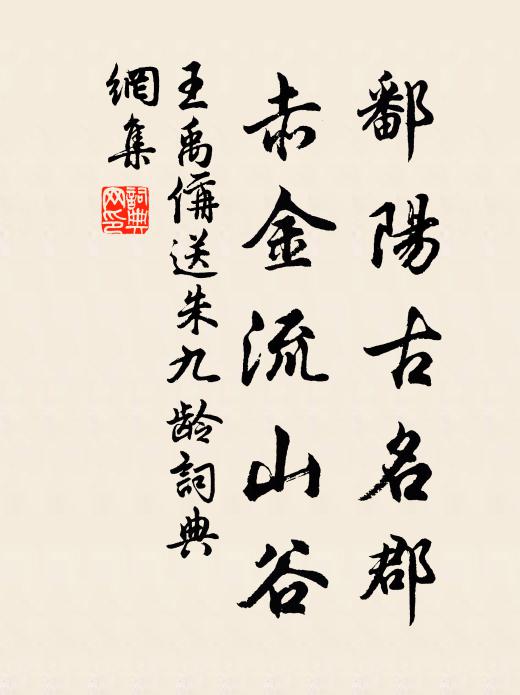 鄱陽古名郡
赤金流山谷
王禹偁送朱九齡詞典
網集
詞典
网印